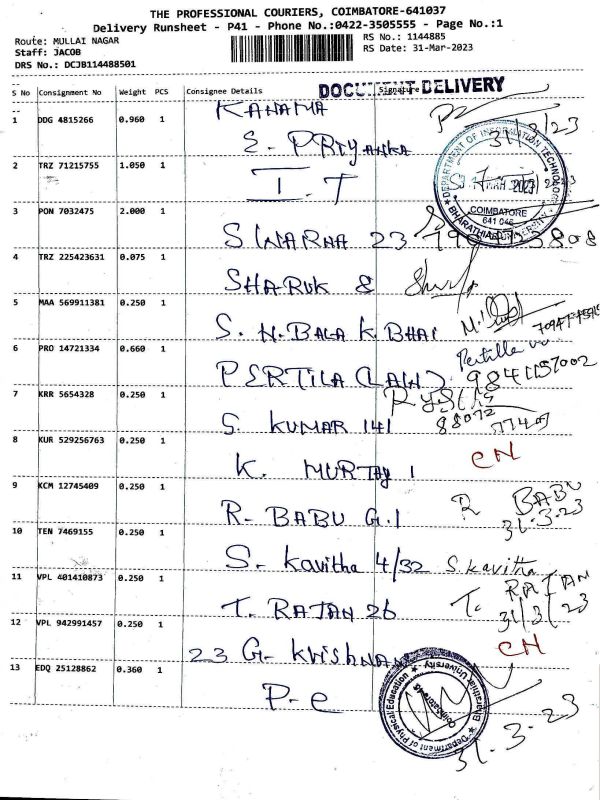 THE PROFESSIONAL COURIERS, COIMBATORE-641037
Delivery Runsheet - P41 - Phone No.:0422-3505555 - Page No.:1
Route: MULLAI NAGAR
RS No.: 1144885
Staff: JACOB
RS Date: 31-Mar-2023
DRS No.: DCJB114488501
DOCUMENT DELIVERY
S No Consignment No Weight PCS Consignee Details Signature
KANAMA
1 DDG 4815266 0.960 1
31/3/23
E. PRIYANKA
2 TRZ 71215755 1.050 1
I.T
DEPARTMENT OF INFORMATION TECHNOLOGY
COIMBATORE
641 046
BHARATHIAR UNIVERSITY
3 PON 7032475 2.000 1
SWARNA 23
4 TRZ 225423631 0.075 1
SHARUK 8
5 MAA 569911381 0.250 1
S. N. BALA K BHAI
6 PRO 14721334 0.660 1
PERTILA (LAW)
7 KRR 5654328 0.250 1
S. KUMAR 141
88072
77407
8 KUR 529256763 0.250 1
K. MURTHY 1
CN
9 KCM 12745409 0.250 1
R. BABU G.1
R BABU
31.3.23
10 TEN 7469155 0.250 1
S. Kavitha 4/32 S.kavitha
11 VPL 401410873 0.250 1
T. RAJAN 26
T. RAJAN
31/3/23
12 VPL 942991457 0.250 1
23 G. Krishnan
CN
13 EDQ 25128862 0.360 1
P-e
Department of Physical Education
Bharathiar University
Coimbatore-46
31.3.23